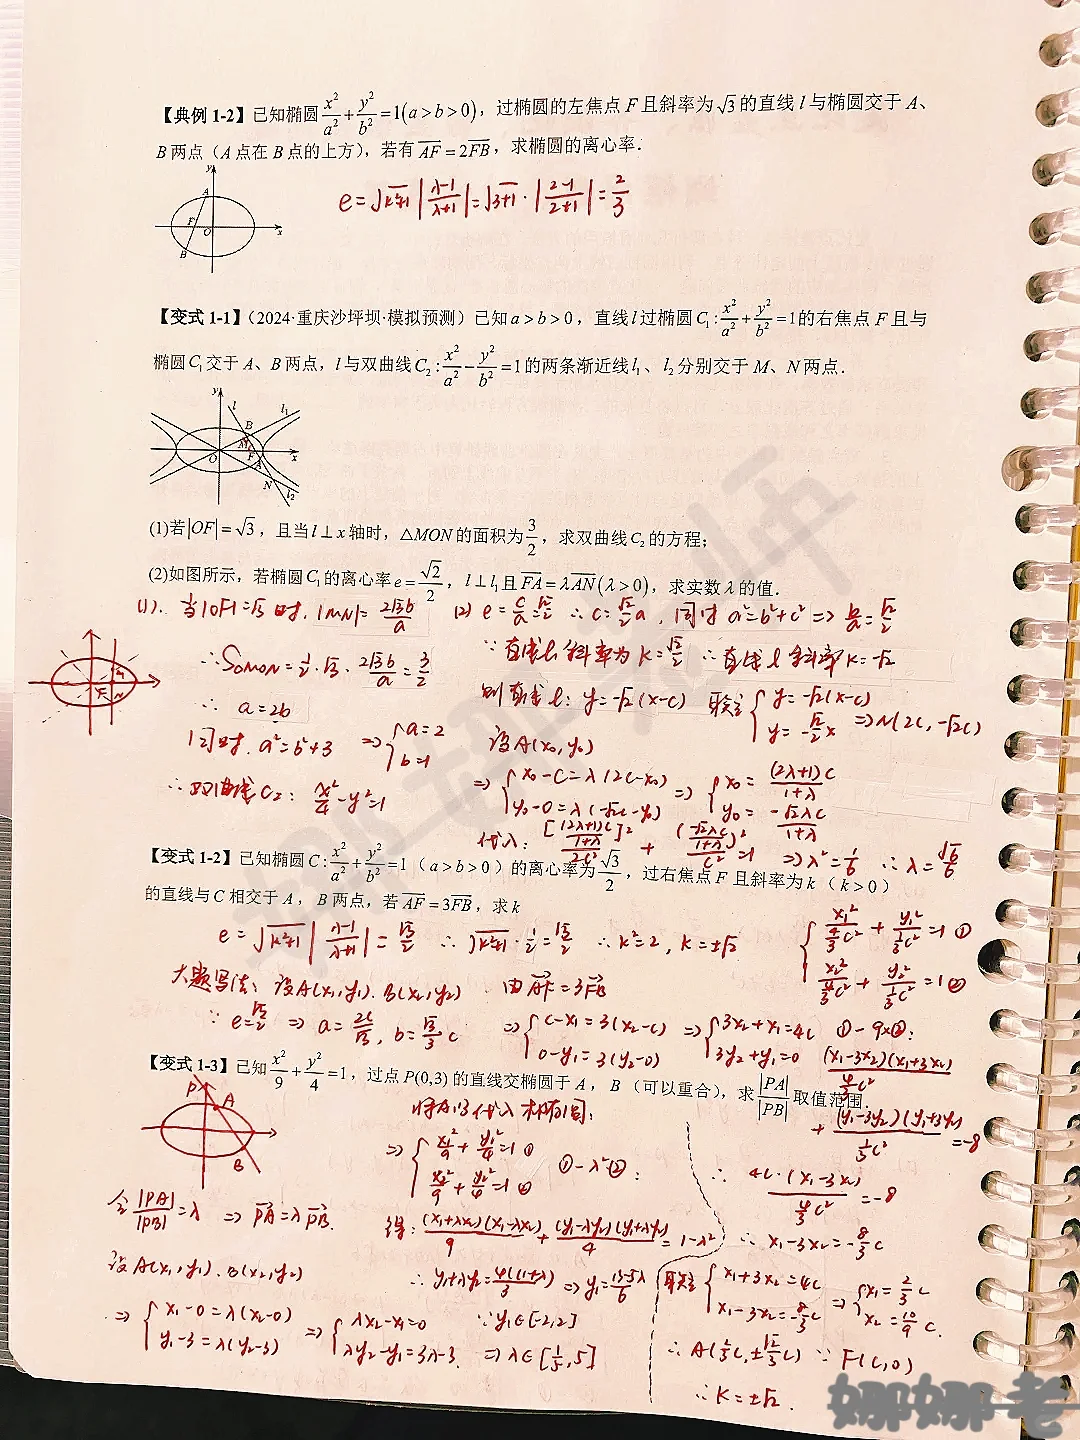 【典例 1-2】已知椭圆 x²/a² + y²/b² = 1(a>b>0)，过椭圆的左焦点 F 且斜率为 √3 的直线 l 与椭圆交于 A、
B 两点（A 点在 B 点的上方），若有 AF = 2FB，求椭圆的离心率．
e = √k²+1 |λ-1/λ+1| = √3+1 · |2-1/2+1| = 2/3
y
A
F
O
x
B
【变式 1-1】（2024·重庆沙坪坝·模拟预测）已知 a>b>0，直线 l 过椭圆 C₁: x²/a² + y²/b² = 1 的右焦点 F 且与
椭圆 C₁ 交于 A、B 两点，l 与双曲线 C₂: x²/a² - y²/b² = 1 的两条渐近线 l₁、l₂ 分别交于 M、N 两点．
y
l
l₁
B
M
O
F
A
x
N
l₂
(1)若|OF| = √3，且当 l⊥x 轴时，△MON 的面积为 3/2，求双曲线 C₂ 的方程；
(2)如图所示，若椭圆 C₁ 的离心率 e = √2/2，l⊥l₁ 且 FA = λAN(λ>0)，求实数 λ 的值．
(1). 当|OF|=√3 时. |MN| = 2√3b/a
∴ S△MON = 1/2 · √3 · 2√3b/a = 3/2
∴ a=2b
同时. a²=b²+3 ⇒ { a=2 b=1
∴ 双曲线C₂: x²/4 - y² = 1
(2) e = c/a = √2/2 ∴ c = √2/2 a, 同时 a²=b²+c² ⇒ b/a = √2/2
∵ 直线l₁斜率为 K = √2/2 ∴ 直线 l 斜率 K = -√2
则直线 l: y = -√2(x-c) 联立 { y = -√2(x-c) y = -√2/2 x ⇒ N(2c, -√2c)
设 A(x₀, y₀)
⇒ { x₀-c = λ(2c-x₀) y₀-0 = λ(-√2c-y₀) ⇒ { x₀ = (2λ+1)c/1+λ y₀ = -√2λc/1+λ
代入: [(2λ+1)c/1+λ]²/2c² + (-√2λc/1+λ)²/c² = 1 ⇒ λ² = 1/6 ∴ λ = √6/6
【变式 1-2】已知椭圆 C: x²/a² + y²/b² = 1（a>b>0）的离心率为 √3/2，过右焦点 F 且斜率为 k（k>0）
的直线与 C 相交于 A，B 两点，若 AF = 3FB，求 k
e = √k²+1 |λ-1/λ+1| = √3/2 ∴ √k²+1 · 1/2 = √3/2 ∴ k²=2, k=±√2
大题写法: 设A(x₁,y₁). B(x₂,y₂) 由 AF = 3FB
∵ e = √3/2 ⇒ a = 2c/√3, b = √3/3 c
⇒ { c-x₁ = 3(x₂-c) 0-y₁ = 3(y₂-0) ⇒ { 3x₂+x₁=4c 3y₂+y₁=0
{ x₁²/(4/3 c²) + y₁²/(1/3 c²) = 1 ① x₂²/(4/3 c²) + y₂²/(1/3 c²) = 1 ②
①-9×②:
(x₁-3x₂)(x₁+3x₂)/(4/3 c²)
+ (y₁-3y₂)(y₁+3y₂)/(1/3 c²) = -8
∴ 4c·(x₁-3x₂)/(4/3 c²) = -8
∴ x₁-3x₂ = -8/3 c
联立 { x₁+3x₂=4c x₁-3x₂=-8/3 c ⇒ { x₁ = 2/3 c x₂ = 10/9 c.
∵ F(c,0)
∴ K = ±√2.
【变式 1-3】已知 x²/9 + y²/4 = 1，过点 P(0,3) 的直线交椭圆于 A，B（可以重合），求 |PA|/|PB| 取值范围
P
A
B
令 |PA|/|PB| = λ ⇒ PA = λPB.
设A(x₁,y₁). B(x₂,y₂)
⇒ { x₁-0 = λ(x₂-0) y₁-3 = λ(y₂-3) ⇒ { λx₂-x₁=0 λy₂-y₁=3λ-3.
将A,B代入椭圆:
⇒ { x₁²/9 + y₁²/4 = 1 ① x₂²/9 + y₂²/4 = 1 ② ①-λ²②:
得: (x₁+λx₂)(x₁-λx₂)/9 + (y₁-λy₂)(y₁+λy₂)/4 = 1-λ²
∴ y₁+λy₂ = 4(1+λ)/3 ⇒ y₁ = 13-5λ/6
∵ y₁∈[-2,2]
⇒ λ∈[1/5, 5]
娜娜老